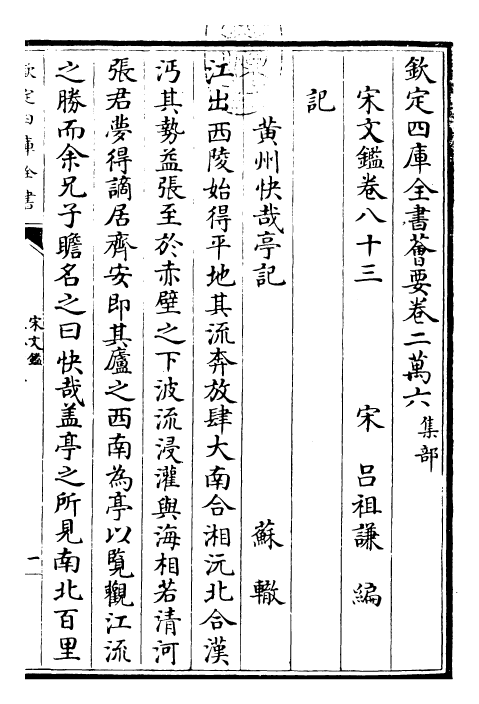 欽定四庫全書薈要卷二萬六 集部
宋文鑑卷八十三 宋 呂祖謙 編
記
黄州快哉亭記 蘇轍
江出西陵始得平地其流奔放肆大南合湘沅北合漢
沔其勢益張至於赤壁之下波流浸灌與海相若清河
張君夢得謫居齊安即其廬之西南為亭以覧觀江流
之勝而余兄子瞻名之曰快哉盖亭之所見南北百里
欽定四庫全書
宋文鑑
一